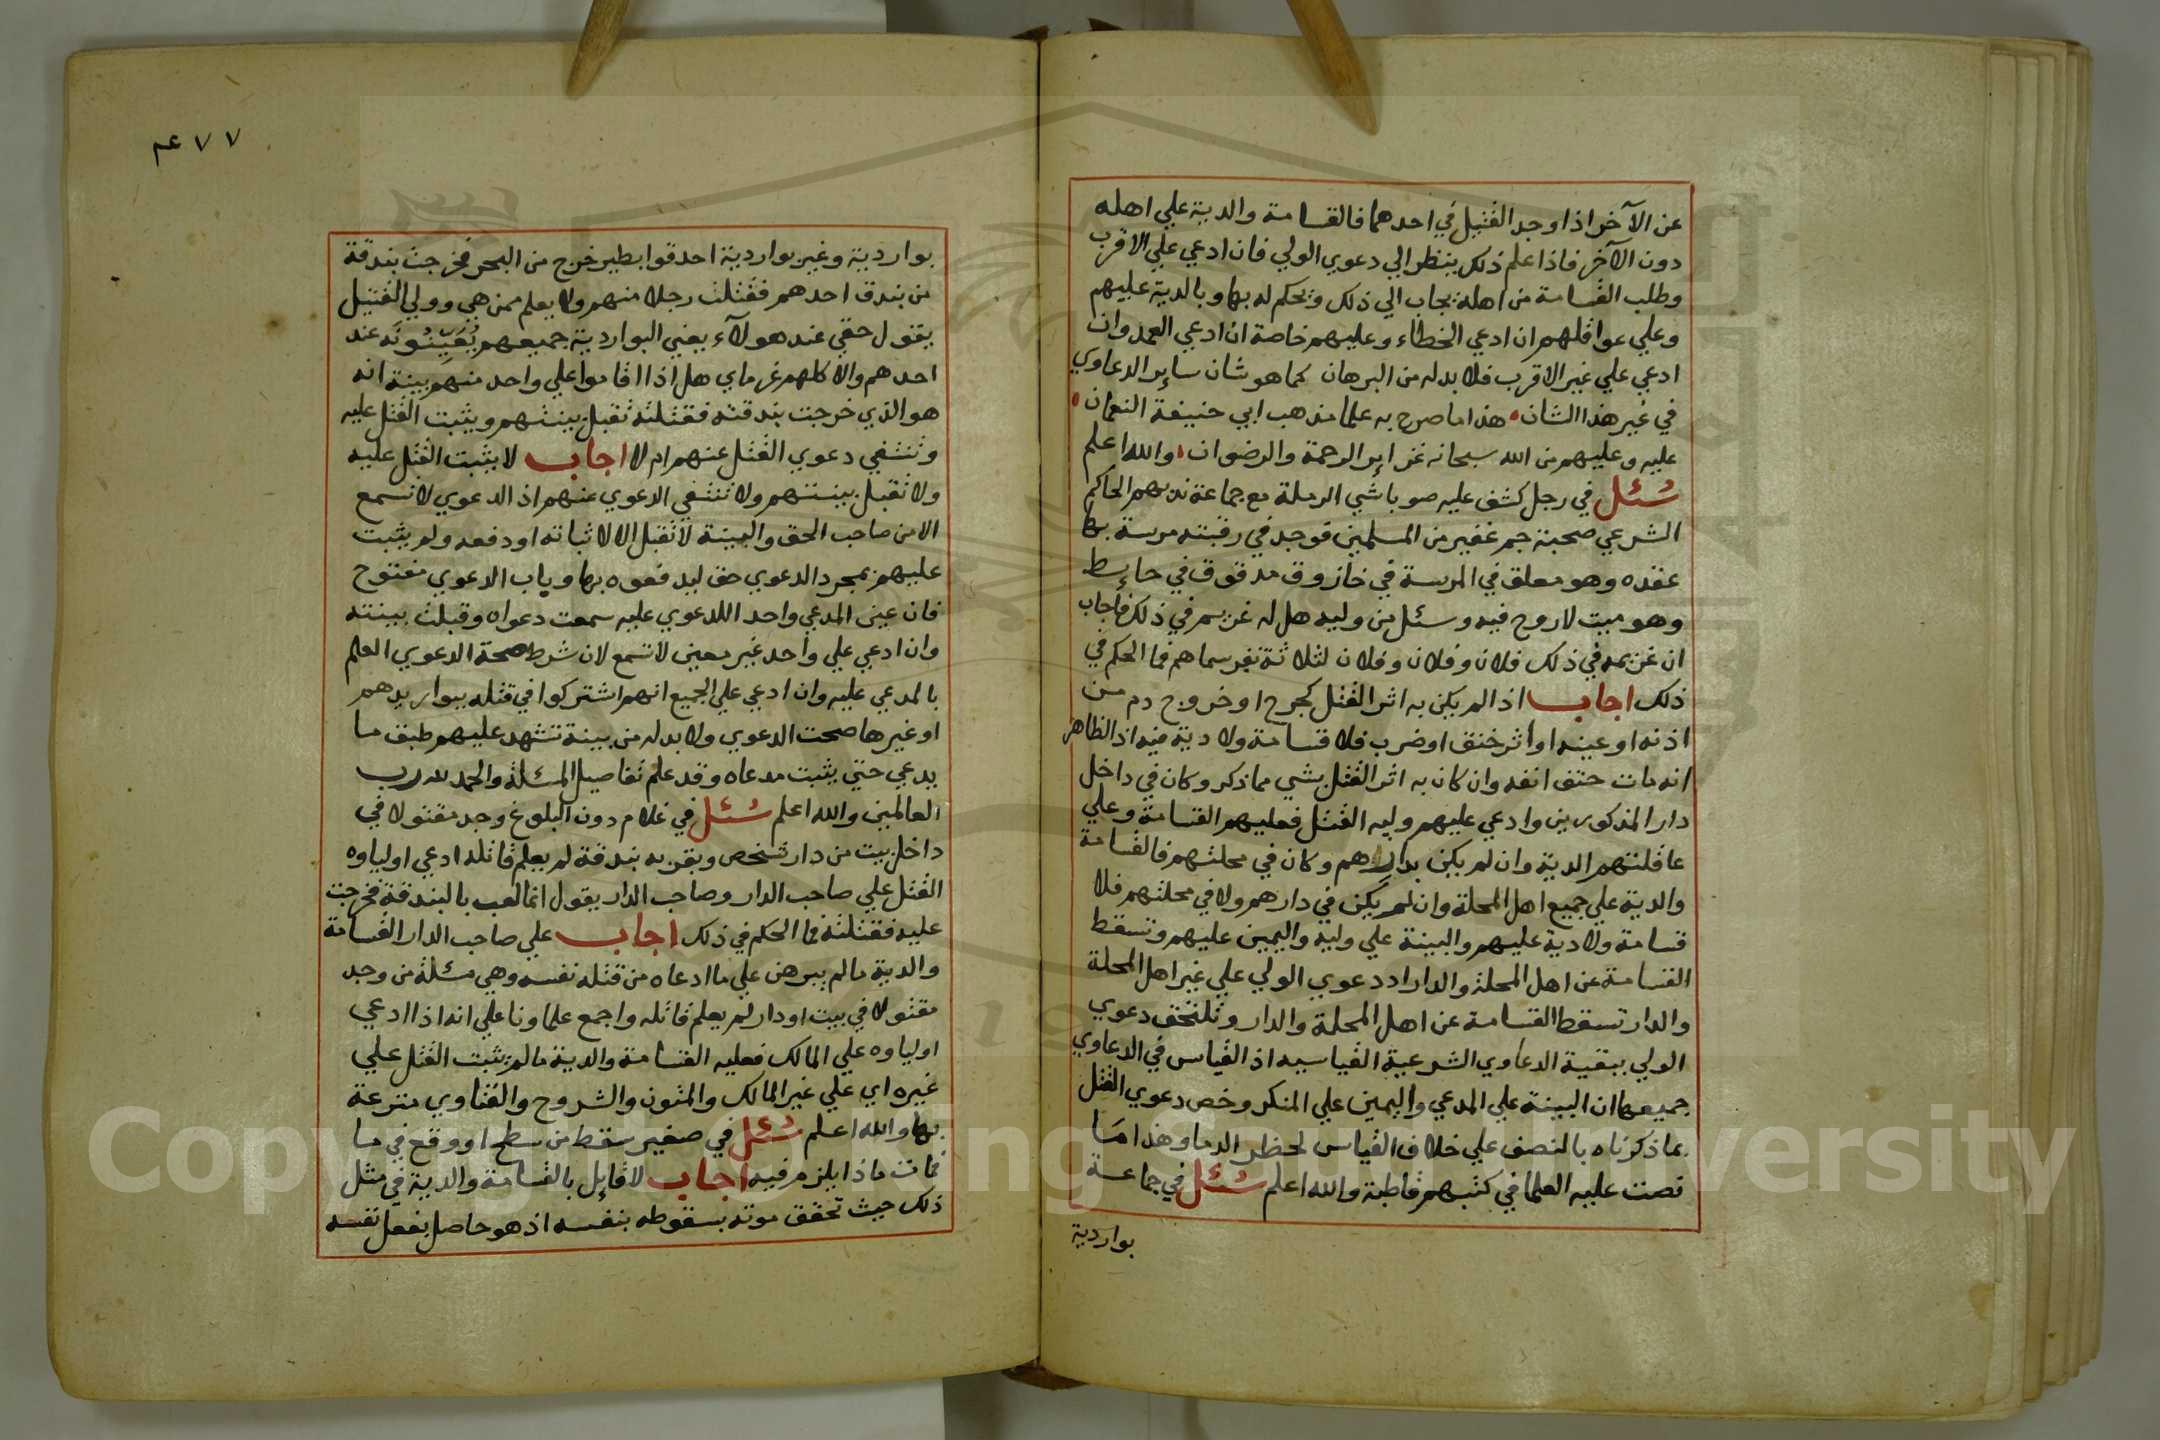 عن الآخر اذا وجد القتيل في احدهما فالقسامة والدية علي اهله
دون الآخر فاذا علم ذلك ينظر الي دعوي الولي فان ادعي علي الاقرب
وطلب القسامة من اهله يجاب الي ذلك ويحكم له بها وبالدية عليهم
وعلي عواقلهم ان ادعي الخطاء وعليهم خاصة ان ادعي العمد وان
ادعي علي غير الاقرب فلا بد له من البرهان كما هو شان ساير الدعاوي
في غير هذا الشان هذا ما صرح به علما مذهب ابي حنيفة النعمان
عليه وعليهم من الله سبحانه غزاير الرحمة والرضوان والله اعلم
سئل في رجل كشف عليه صوباشي الرملة مع جماعة ندبهم الحاكم
الشرعي صحبته جم غفير من المسلمين فوجد في رقبته مرسة بها
عقده وهو معلق في المرسة في خازوق مدقوق في حايط
وهو ميت لا روح فيه وسئل من وليه هل له غريم في ذلك فاجاب
ان غريمه في ذلك فلان وفلان وفلان لثلاثة نفر سماهم فما الحكم في
ذلك اجاب اذا لم يكن به اثر القتل كجرح او خروج دم من
اذنه او عينه او اثر خنق او ضرب فلا قسامة ولا دية فيه اذ الظاهر
انه مات حتف انفه وان كان به اثر القتل بشي مما ذكر وكان في داخل
دار المذكورين وادعي عليهم وليه القتل فعليهم القسامة وعلي
عاقلتهم الدية وان لم يكن بدارهم وكان في محلتهم فالقسامة
والدية علي جميع اهل المحلة وان لم يكن في دارهم ولا في محلتهم فلا
قسامة ولا دية عليهم والبينة علي وليه واليمين عليهم وتسقط
القسامة عن اهل المحلة والدار اد دعوي الولي علي غير اهل المحلة
والدار تسقط القسامة عن اهل المحلة والدار وتلتحق دعوي
الولي ببقية الدعاوي الشرعية القياسيه اذ القياس في الدعاوي
جميعها ان البينة علي المدعي واليمين علي المنكر وخص دعوي القتل
بما ذكرناه بالنصف علي خلاف القياس لحظر الدما وهذا مما
نصت عليه العلما في كتبهم قاطبة والله اعلم سئل في جماعة
بواردية
٧٧ عم
بواردية وغير بواردية احدقوا بطير خرج من البحر فخرجت بندقة
من بندق احدهم فقتلت رجلا منهم ولا يعلم ممن هي وولي القتيل
يقول حقي عند هولآء يعني البواردية جميعهم يُعَيِّنُونَه عند
احدهم والا كلهم غرماي هل اذا اقاموا علي واحد منهم بينة انه
هو الذي خرجت بندقته فقتلته تقبل بينتهم ويثبت القتل عليه
وتنتفي دعوي القتل عنهم ام لا اجاب لا يثبت القتل عليه
ولا تقبل بينتهم ولا تنتفي الدعوي عنهم اذ الدعوي لا تسمع
الا من صاحب الحق والبينة لا تقبل الا لاثباته او دفعه ولم يثبت
عليهم بمجرد الدعوي حق ليدفعوه بها وباب الدعوي مفتوح
فان عين المدعي واحد اللدعوي عليه سمعت دعواه وقبلت بينته
وان ادعي علي واحد غير معين لا تسمع لان شرط صحة الدعوي العلم
بالمدعي عليه وان ادعي علي الجميع انهم اشتركوا في قتله ببواريدهم
او غيرها صحت الدعوي ولا بد له من بينة تشهد عليهم طبق ما
يدعي حتي يثبت مدعاه وقد علم تفاصيل المسئلة والحمد لله رب
العالمين والله اعلم سئل في غلام دون البلوغ وجد مقتولا في
داخل بيت من دار شخص وبقربه بندقة لم يعلم قاتله ادعي اولياوه
القتل علي صاحب الدار وصاحب الدار يقول انما لعب بالبندقة فخرجت
عليه فقتلته فما الحكم في ذلك اجاب علي صاحب الدار القسامة
والدية ما لم يبرهن علي ما ادعاه من قتله نفسه وهي مسئلة من وجد
مقتولا في بيت او دار لم يعلم قاتله واجمع علماونا علي انه اذا ادعي
اولياوه علي المالك فعليه القسامة والدية ما لم يثبت القتل علي
غيره اي علي غير المالك والمتون والشروح والفتاوي مترعة
بها والله اعلم سئل في صغير سقط من سطح او وقع في ما
فمات ماذا يلزم فيه اجاب لا قايل بالقسامة والدية في مثل
ذلك حيث تحقق موته بسقوطه بنفسه اذ هو حاصل بفعل نفسه
Copyright © King Saud University